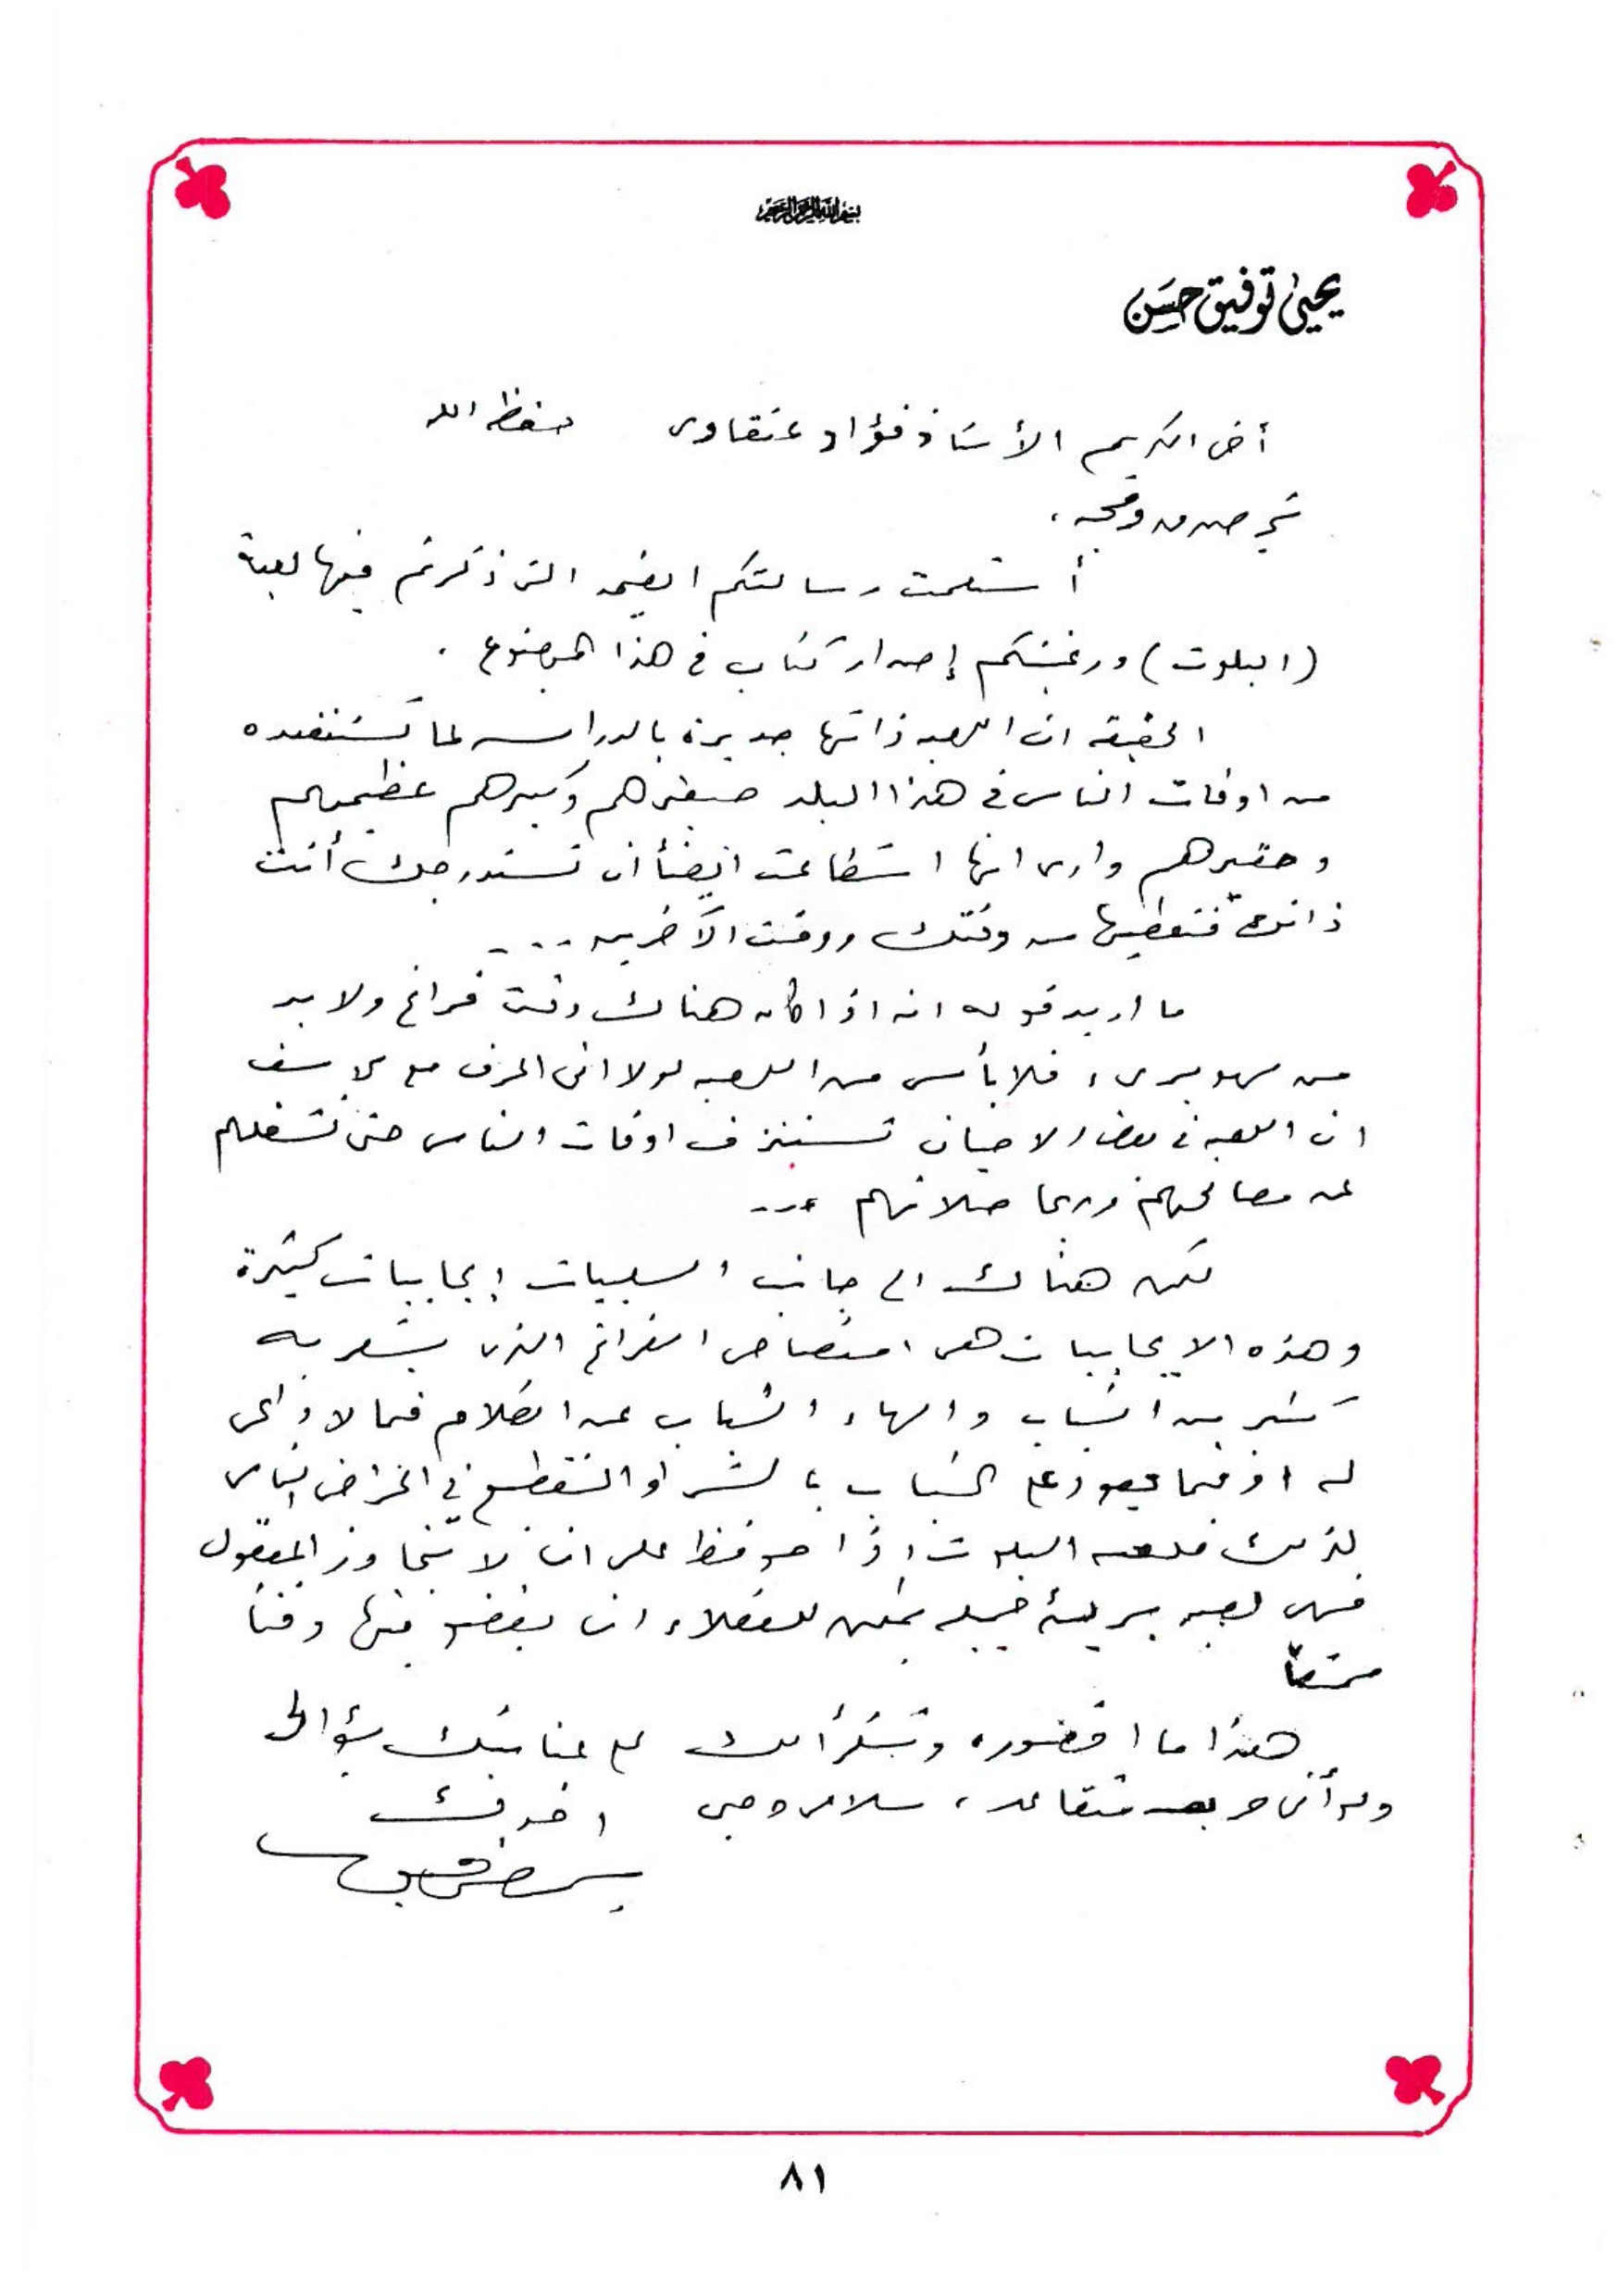 بسم الله الرحمن الرحيم
يحيى توفيق حسن
أخي الكريم الأستاذ فؤاد عنقاوي حفظه الله
أستلمت رسالتكم القيمه التي ذكرتم فيها لعبة
(البلوت) ورغبتكم إصدار كتاب في هذا الموضوع .
الحقيقه ان اللعبه ذاتها جديرة بالدراسه لما تستنفده
من اوقات الناس في هذا البلد صغيرهم وكبيرهم عظيمهم
وحقيرهم وارى انها استطاعت ايضاً ان تستدرجك أنت
ذاتك فتعطيها من وقتك ووقت الآخرين ...
ما اريد قوله انه اذا كان هناك وقت فراغ ولا بد
من لهو برىء فلا بأس من اللعبه لولا انى اعرف مع الاسف
ان اللعبه في بعض الاحيان تستنزف اوقات الناس حتى تشغلهم
عن مصالحهم وربما صلاتهم ...
لكن هناك الى جانب السلبيات إيجابيات كثيرة
وهذه الايجابيات هى امتصاص الفراغ الذى يشعر به
كثير من الشباب والهاء الشباب عن الكلام فيما لا داعى
له او فيما يعود على الشباب بالشر او التقطيع في اعراض الناس
لذلك فلعبه البلوت اذا حوفظ على ان لا تتجاوز المعقول
فهى لعبه بريئة جميله يمكن للعقلاء ان يقضو فيها وقتاً
ممتعاً
هذا ما اتصوره وشكراً لك على عنايتك بسؤالى
ولو أنى حريف متقاعد ، سلامى وحبى اخوك
٨١